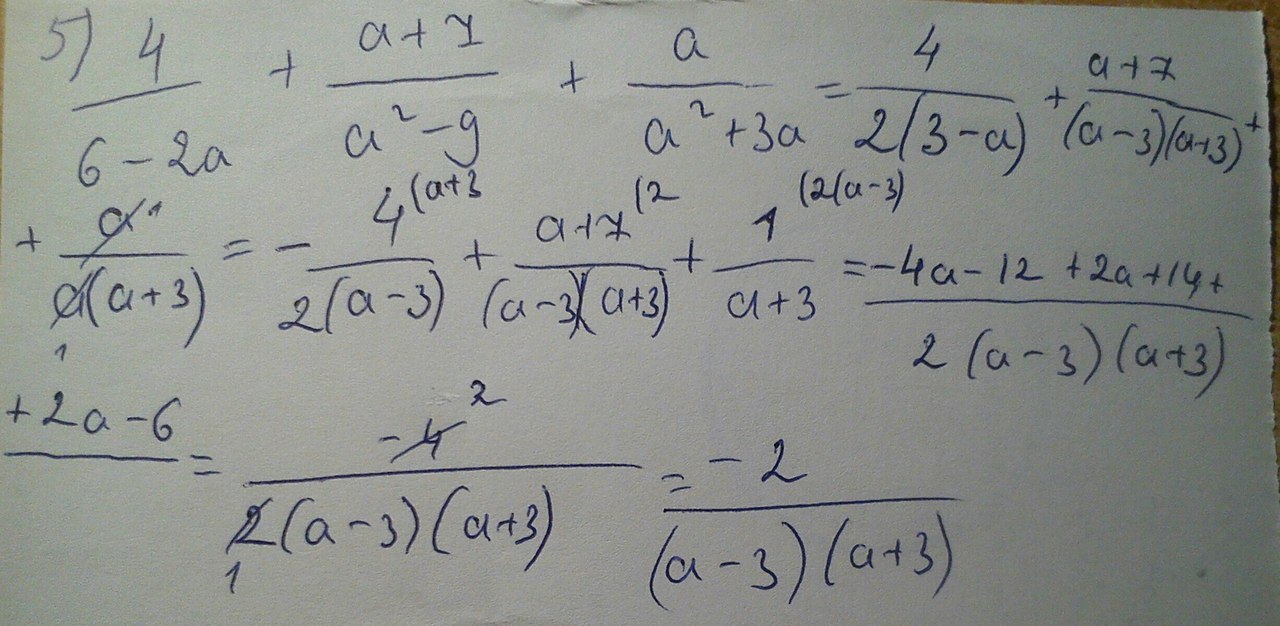 5) 4/(6-2a) + (a+7)/(a²-9) + a/(a²+3a) = 4/(2(3-a)) + (a+7)/((a-3)(a+3)) +
+ a¹/(a₁(a+3)) = - 4^(a+3/(2(a-3)) + a+7^(2/((a-3)(a+3)) + 1^(2(a-3)/(a+3) = -4a-12+2a+14+/(2(a-3)(a+3))
+2a-6/ = -4²/(2₁(a-3)(a+3)) = -2/((a-3)(a+3))